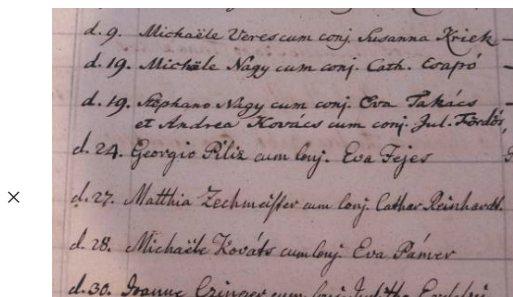 d. 9. Michaële Veres cum conj. Susanna Kriek
d. 19. Michële Nagy cum conj. Cath. Csapró
d. 19. Stephano Nagy cum conj. Eva Takács
et Andrea Kovács cum conj. Jul. Fördős,
d. 24. Georgio Piliz cum Conj. Eva Fejes
d. 27. Matthia Zechmeister cum Conj. Cathar. Reinhardt.
d. 28. Michaële Kováts cum Conj. Eva Pámer
d. 30. Joanne Czinger cum Conj. Juditha